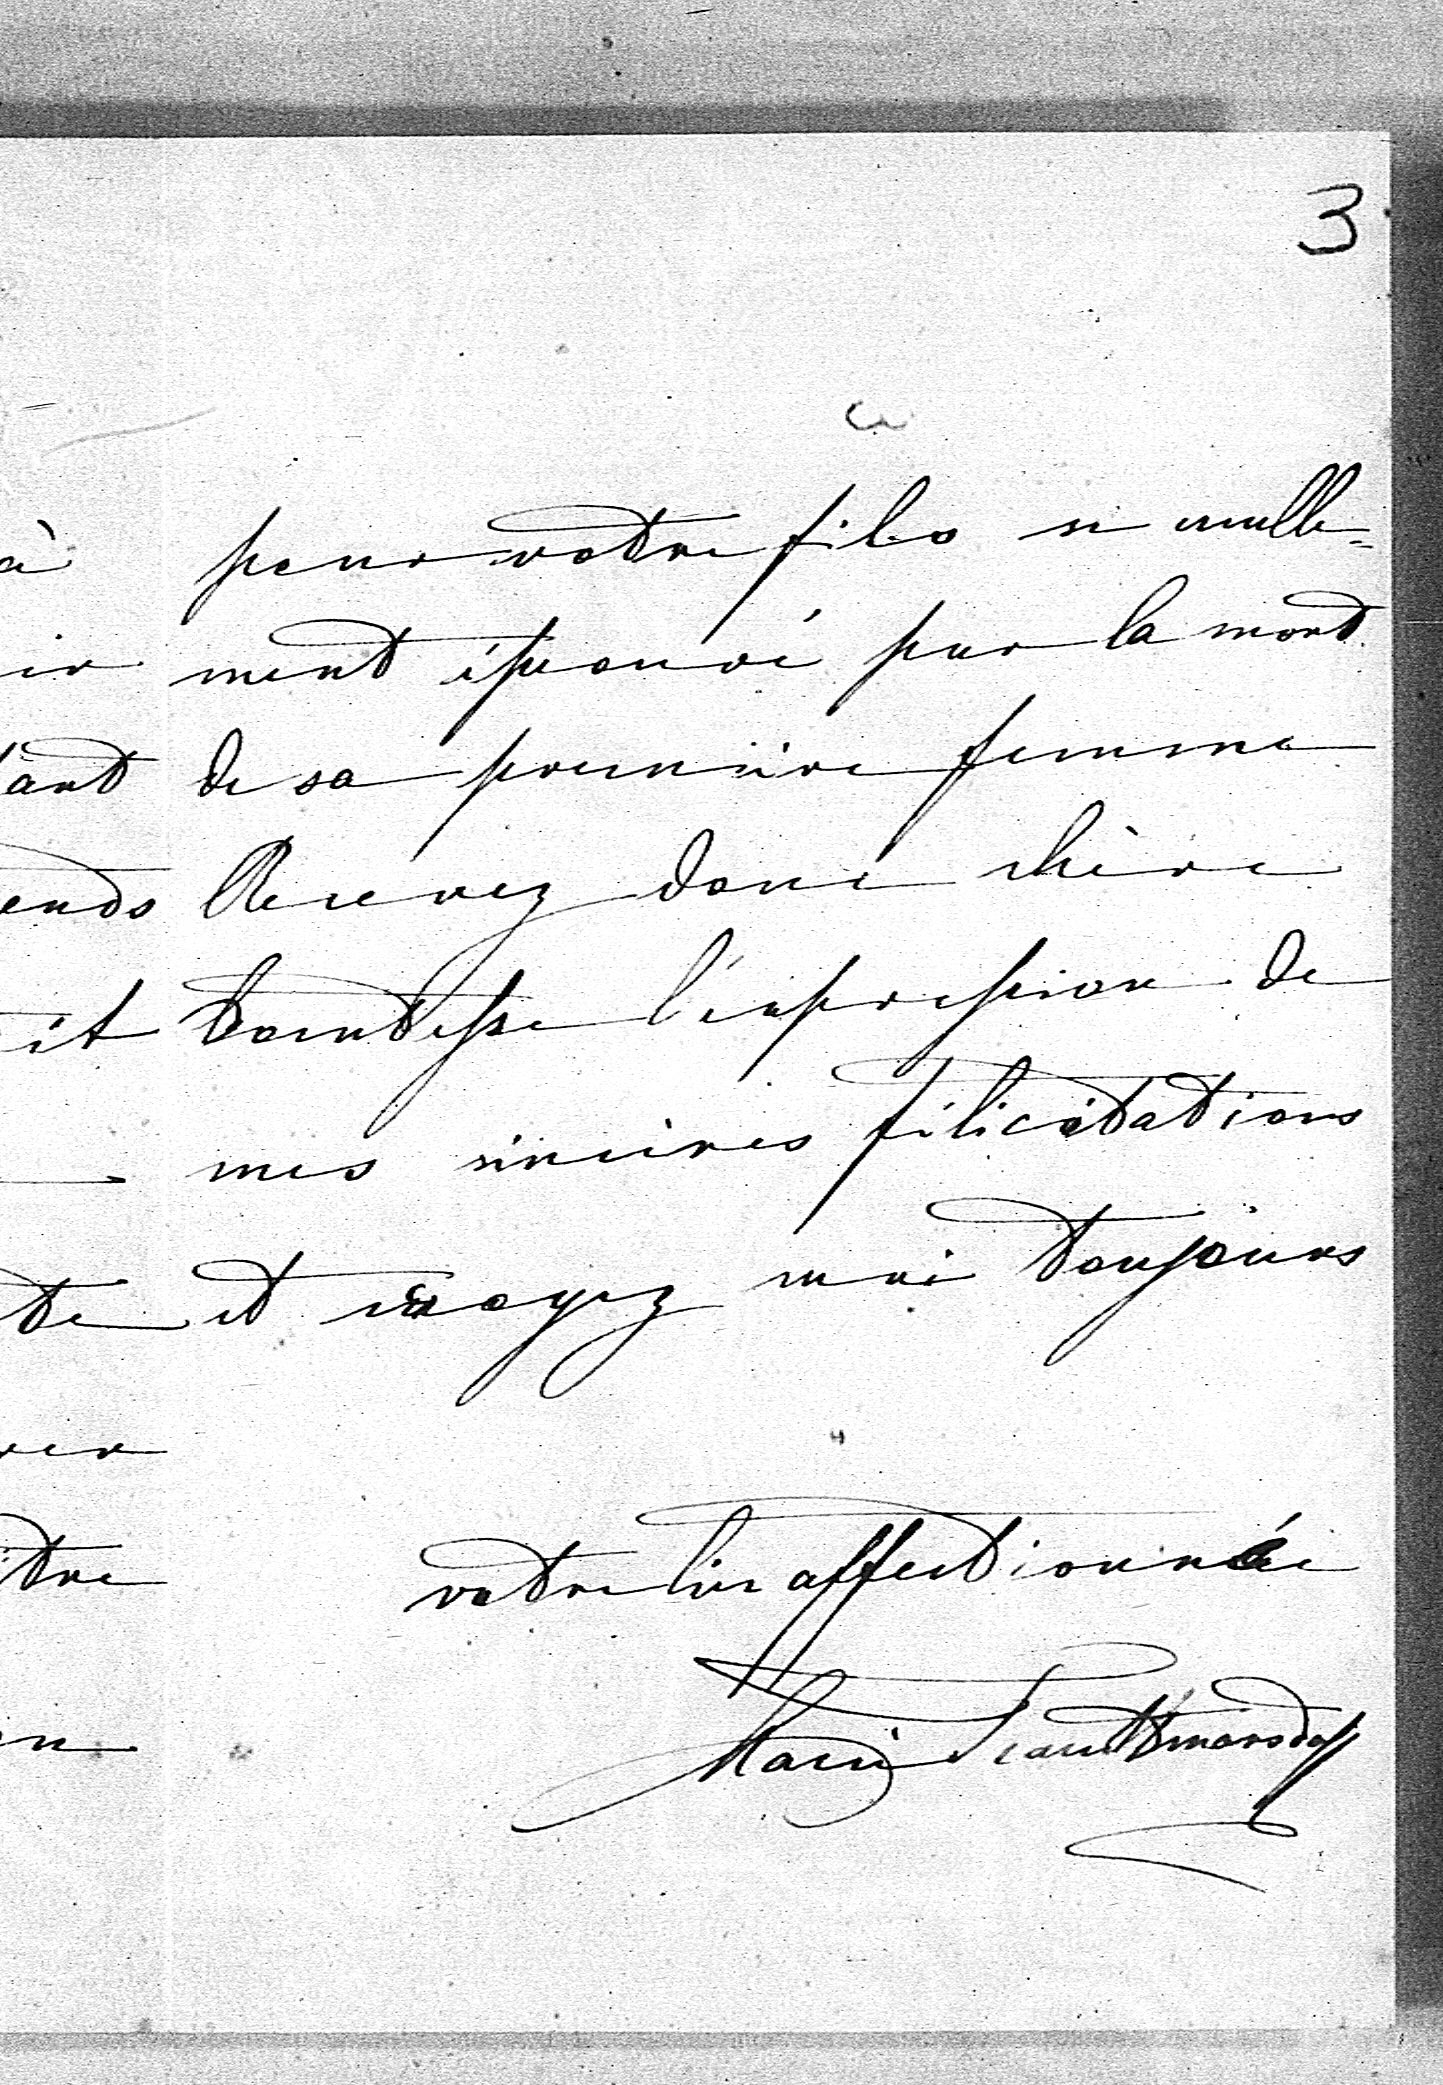 3
pour votre fils si cruelle-
ment éprouvé par la mort
de sa première femme
Recevez donc chère
Comtesse l'expression de
mes sincères félicitations
et croyez moi toujours
votre bien affectionnée
Marie Trauttmansdorff
à
ir
ant
ends
it
te
rer
tre
en